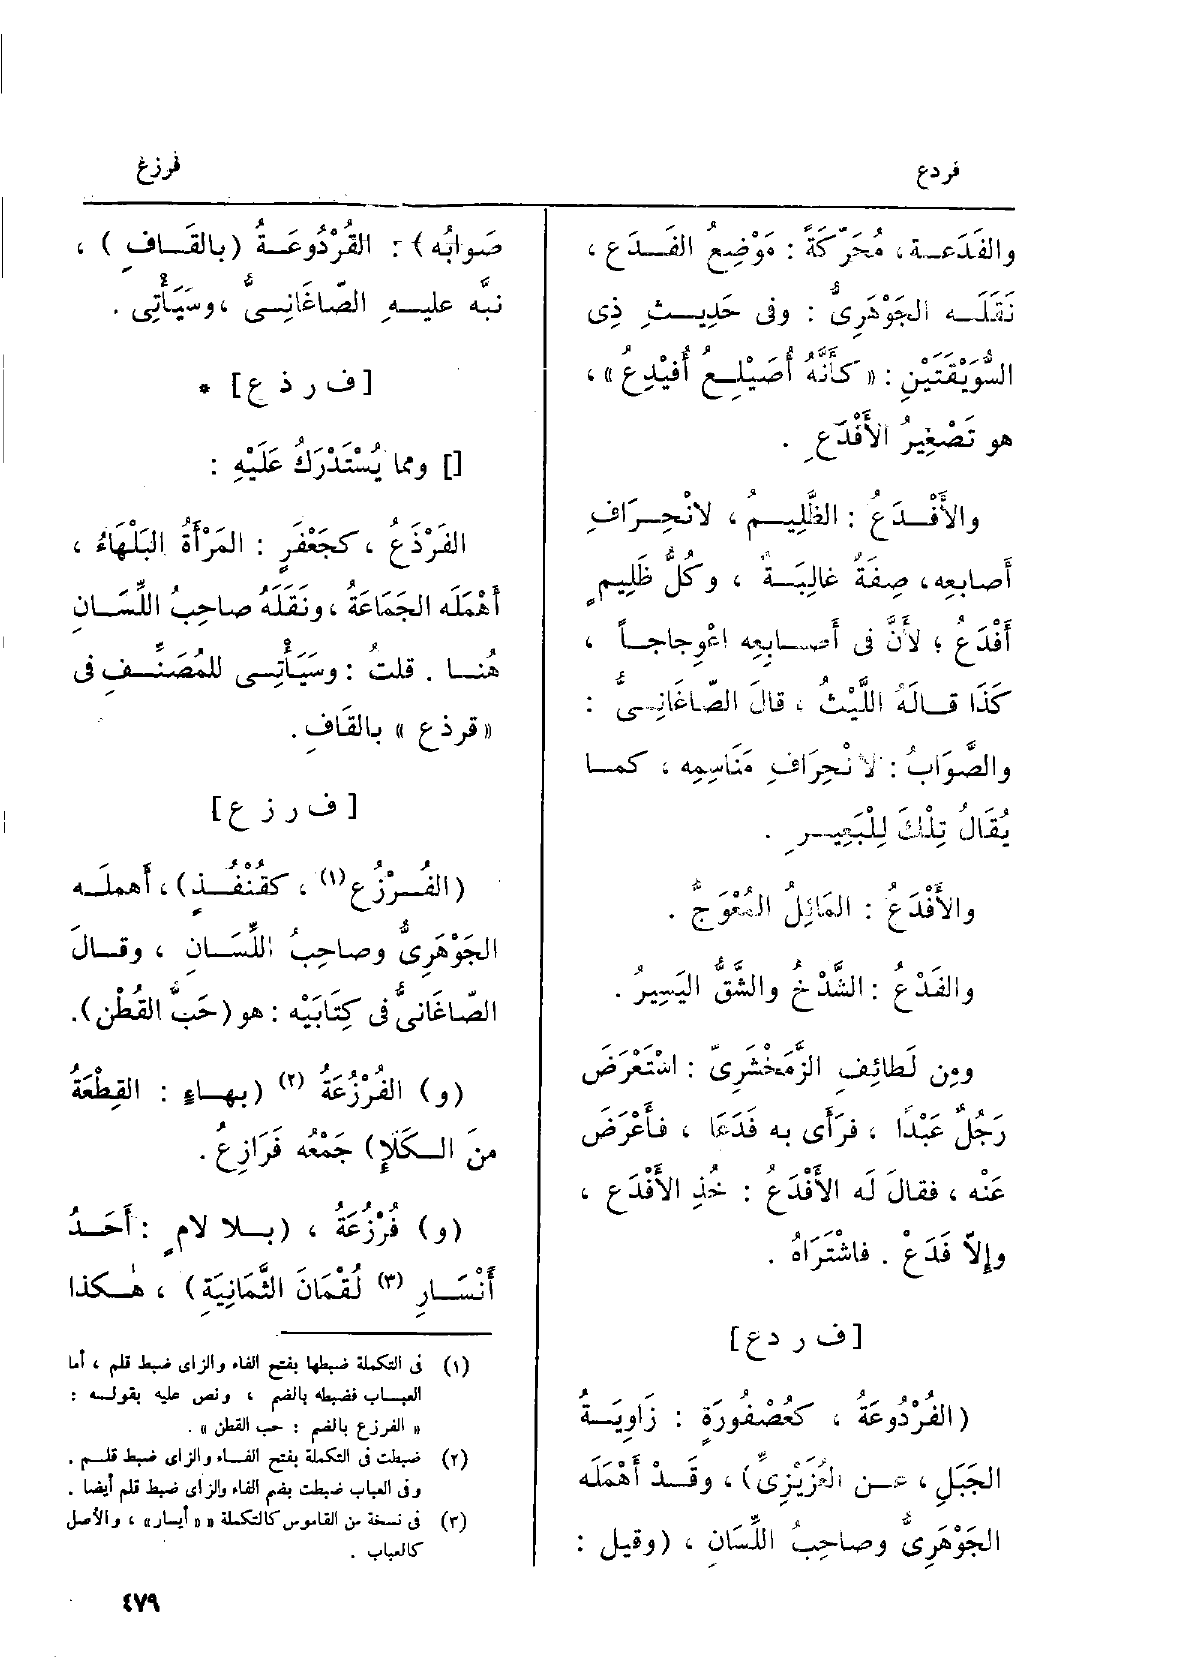 فردع
فرزغ
والفَدَعــة، مُحَرّكَةً : مَوْضِعُ الفَـــدَعِ ،
نَقَلَــه الجَوْهَرِىُّ : وفى حَدِيــثِ ذِى
السُّوَيْقَتَيْنِ : « كَأَنَّهُ أُصَيْلِــعُ أُفَيْدِعُ » ،
هو تَصْغِيرُ الأَفْدَعِ .
والأَفْــدَعُ : الظَّلِيــمُ ، لانْحِــرَافِ
أَصابعِه، صِفَةٌ غالِبَــةٌ ، وكُلُّ ظَلِيمٍ
أَفْدَعُ ؛ لأَنَّ فى أَصــابِعِه اعْوِجاجــاً ،
كَذَا قــالَهُ اللَّيْثُ ، قالَ الصّاغَانِــىُّ :
والصَّوَابُ : لانْحِرَافِ مَنَاسِمِه ، كمــا
يُقَالُ تِلْكَ لِلْبَعِيــرِ .
والأَفْدَعُ : المَائِلُ المُعْوَجُّ .
والفَدْعُ : الشَّدْخُ والشَّقُّ اليَسِيرُ .
ومِن لَطائِفِ الزَّمَخْشَرِىّ : اسْتَعْرَضَ
رَجُلٌ عَبْدًا ، فرَأَى به فَدَعًا ، فأَعْرَضَ
عَنْه ، فقالَ لَه الأَفْدَعُ : خُذِ الأَفْدَعَ ،
وإِلاّ فَدَعْ . فاشْتَرَاهُ .
[ف ر دع]
(الفُرْدُوعَةُ ، كعُصْفُورَةٍ : زَاوِيَــةُ
الجَبَلِ ، عــن العُزَيْزِىِّ) ، وقَــدْ أَهْمَلَه
الجَوْهَرِىُّ وصاحِبُ اللِّسَانِ ، (وقيل :
صَوابُه) : القُرْدُوعَــةُ (بالقَــافِ) ،
نبَّه عليــهِ الصّاغَانِــىُّ ،وسَيَأْتِى .
[ف ر ذ ع] *
[] ومما يُسْتَدْرَكُ عَلَيْهِ :
الفَرْذَعُ ، كجَعْفَرٍ : المَرْأَةُ البَلْهَاءُ ،
أَهْمَلَه الجَمَاعَةُ ، ونَقَلَهُ صاحِبُ اللِّسَــانِ
هُنــا . قلتُ : وسَيَأْتِــى للمُصَنِّــفِ فى
« قرذع » بالقَافِ .
[ف ر ز ع]
(الفُــرْزُع (١) ، كقُنْفُــذٍ) ، أَهملَــه
الجَوْهَرِىُّ وصاحِبُ اللِّسَــانِ ، وقــالَ
الصّاغَانىُّ فى كِتَابَيْه : هو (حَبُّ القُطْنِ).
(و) الفُرْزُعَةُ (٢) (بهــاءٍ : القِطْعَةُ
منَ الــكَلَإِ) جَمْعُه فَرَازِعُ .
(و) فُرْزُعَةُ ، (بــلا لامٍ : أَحَــدُ
أَنْسَــارِ (٣) لُقْمَانَ الثَّمَانِيَةِ) ، هٰــكذا
(١) فى التكملة ضبطها بفتح الفاء والزاى ضبط قلم ، أما
العبــاب فضبطه بالضم ، ونص عليه بقولــه :
« الفرزع بالضم : حب القطن » .
(٢) ضبطت فى التكملة بفتح الفــاء والزاى ضبط قلــم .
وفى العباب ضبطت بضم الفاء والزاى ضبط قلم أيضا .
(٣) فى نسخة من القاموس كالتكملة « أيسار» ، والأصل
كالعباب .
٤٧٩